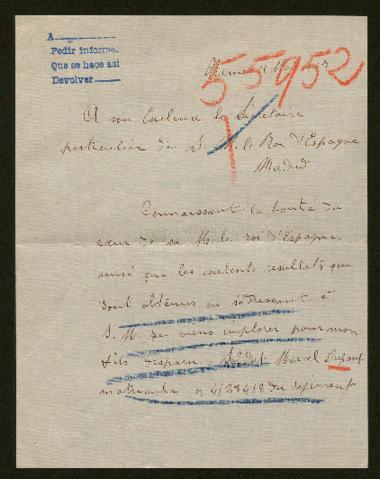 A
Pedir informe
Que se hace asi
Devolver
55952
A son Excelence le Secretaire
particulier de S. M. le Roi d'Espagne
Madrid
Connaissant la bonté du
cœur de sa M. le roi d'Espagne
ainsi que les excelents resultats qui
sont obtenus en s'adressant à
S. M. je viens implorer pour mon
fils disparu Soldat Marcel Dupont
matricule n 4/28418 du regiment